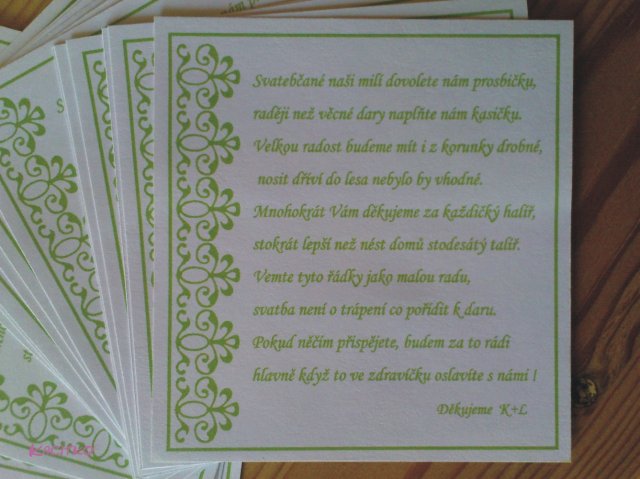 Svatebčané naši milí dovolete nám prosbičku,
raději než věcné dary naplňte nám kasičku.
Velkou radost budeme mít i z korunky drobné,
nosit dříví do lesa nebylo by vhodné.
Mnohokrát Vám děkujeme za každičký halíř,
stokrát lepší než nést domů stodesátý talíř.
Vemte tyto řádky jako malou radu,
svatba není o trápení co pořídit k daru.
Pokud něčím přispějete, budem za to rádi
hlavně když to ve zdravíčku oslavíte s námi !
Děkujeme K+L